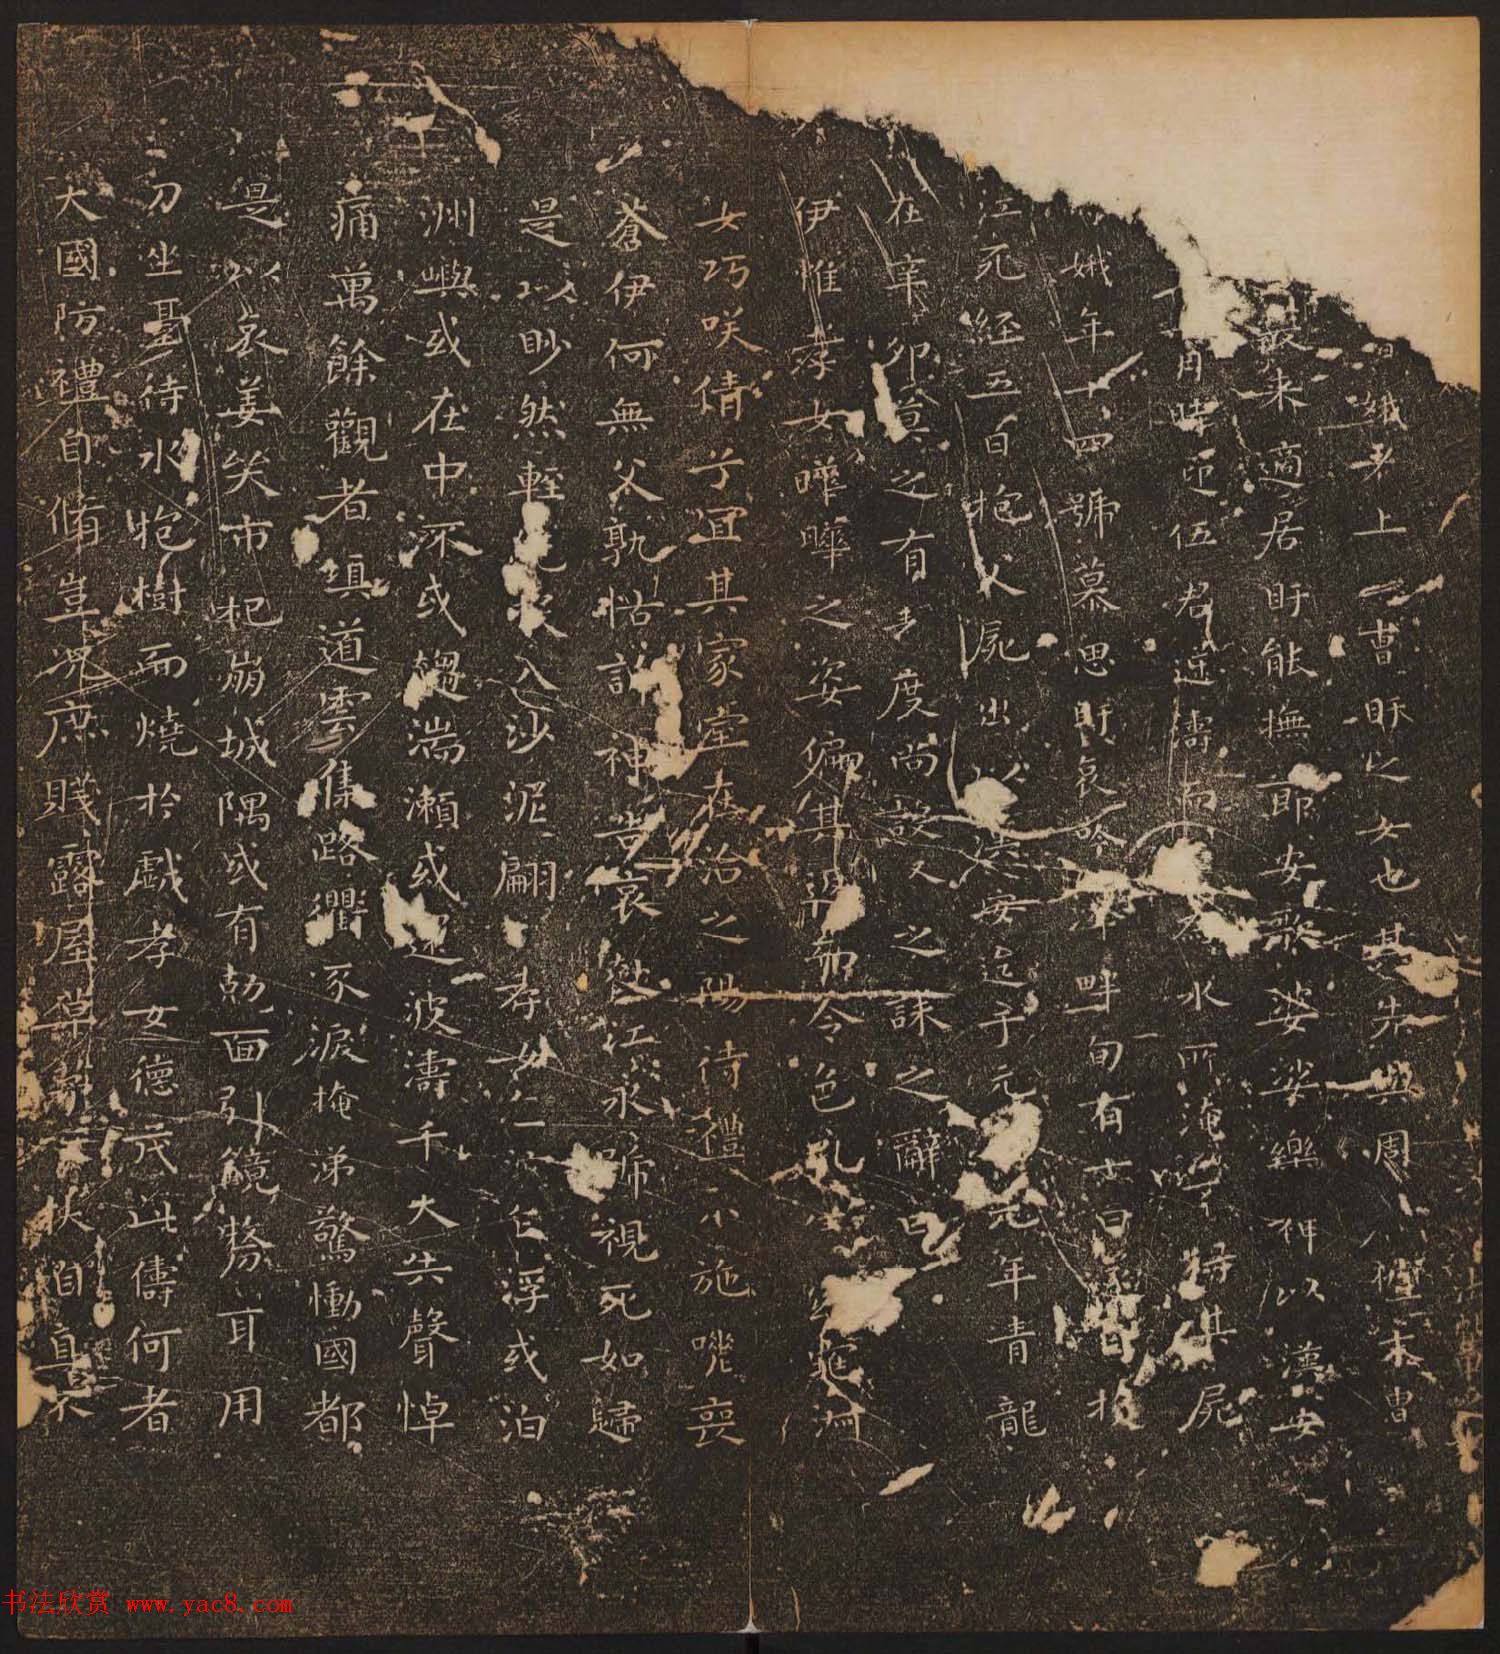 娥者上虞曹盱之女也其先與周同祖末胄
景來適居盱能撫節安歌婆娑樂神以漢安
年五月時迎伍君逆濤而上為水所淹不得其屍
娥年十四號慕思盱哀吟澤畔旬有七日遂自投
江死經五日抱父屍出以漢安迄于元嘉元年青龍
在辛卯莫之有表度尚設祭之誄之辭曰
伊惟孝女曄曄之姿偏其返而令色孔儀窈窕淑
女巧咲倩兮宜其家室在洽之陽待禮未施嗟喪
蒼伊何無父孰怙訴神告哀赴江永號視死如歸
是以眇然輕絕投入沙泥翩翩孝女乍沉乍浮或泊
洲嶼或在中流或趨湍瀨或還波濤千夫失聲悼
痛萬餘觀者填道雲集路衢流淚掩涕驚慟國都
是以哀姜哭市杞崩城隅或有剋面引鏡剺耳用
刀坐臺待水抱樹而燒於戲孝女德茂此儔何者
大國防禮自脩豈況庶賤露屋草茅不扶自直不
書法欣賞 www.yac8.com